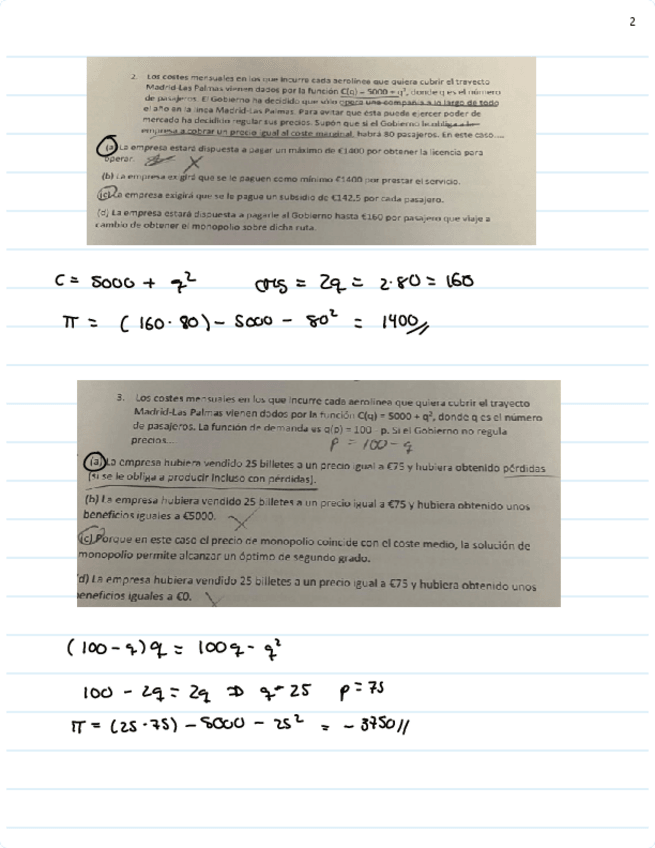 2
2. Los costes mensuales en los que incurre cada aerolínea que quiera cubrir el trayecto
Madrid-Las Palmas vienen dados por la función C(q) = 5000 + q², donde q es el número
de pasajeros. El Gobierno ha decidido que sólo opere una compañía a lo largo de todo
el año en la línea Madrid-Las Palmas. Para evitar que ésta pueda ejercer poder de
mercado ha decidido regular sus precios. Supón que si el Gobierno le obliga a la
empresa a cobrar un precio igual al coste marginal, habrá 80 pasajeros. En este caso....
(a) La empresa estará dispuesta a pagar un máximo de €1400 por obtener la licencia para
operar.
(b) La empresa exigirá que se le paguen como mínimo €1400 por prestar el servicio.
(c) La empresa exigirá que se le pague un subsidio de €142,5 por cada pasajero.
(d) La empresa estará dispuesta a pagarle al Gobierno hasta €160 por pasajero que viaje a
cambio de obtener el monopolio sobre dicha ruta.
C = 5000 + q² cmg = 2q = 2·80 = 160
π = (160·80) - 5000 - 80² = 1400//
3. Los costes mensuales en los que incurre cada aerolínea que quiera cubrir el trayecto
Madrid-Las Palmas vienen dados por la función C(q) = 5000 + q², donde q es el número
de pasajeros. La función de demanda es q(p) = 100 - p. Si el Gobierno no regula
precios... p = 100 - q
(a) La empresa hubiera vendido 25 billetes a un precio igual a €75 y hubiera obtenido pérdidas
(si se le obliga a producir incluso con pérdidas).
(b) La empresa hubiera vendido 25 billetes a un precio igual a €75 y hubiera obtenido unos
beneficios iguales a €5000.
(c) Porque en este caso el precio de monopolio coincide con el coste medio, la solución de
monopolio permite alcanzar un óptimo de segundo grado.
d) La empresa hubiera vendido 25 billetes a un precio igual a €75 y hubiera obtenido unos
eneficios iguales a €0.
(100 - q)q = 100q - q²
100 - 2q = 2q ⇒ q = 25 p = 75
π = (25·75) - 5000 - 25² = -3750//